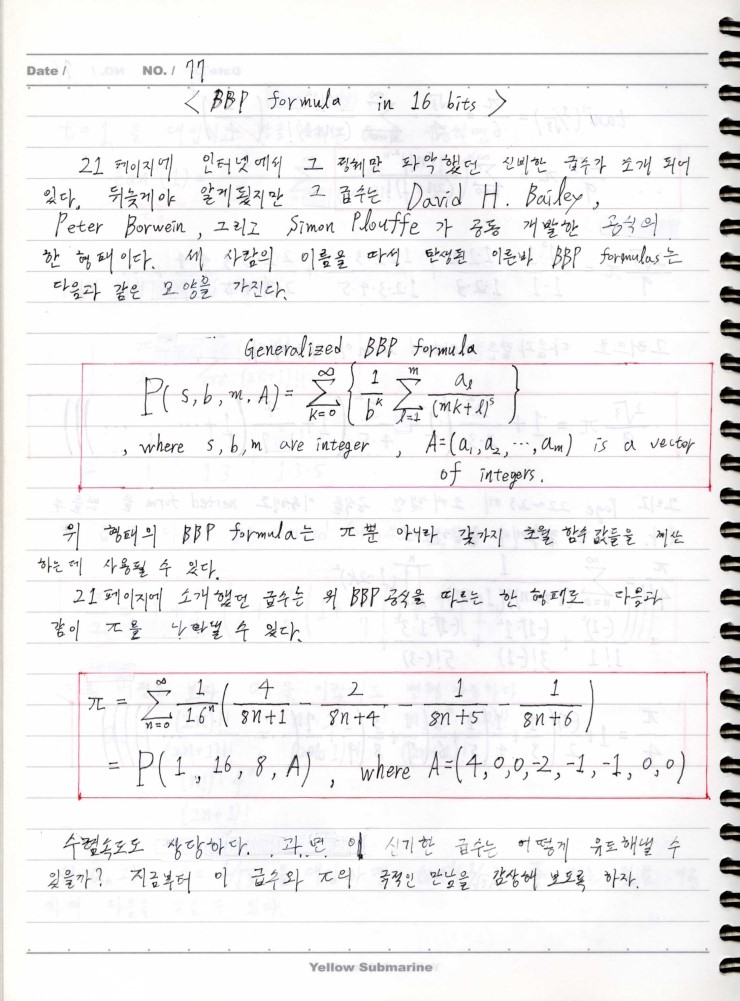 Date / NO. / 77
< BBP formula in 16 bits >
21 페이지에 인터넷에서 그 정체만 파악했던 신비한 급수가 소개 되어
있다. 뒤늦게야 알게됬지만 그 급수는 David H. Bailey,
Peter Borwein, 그리고 Simon Plouffe 가 공동 개발한 공식의
한 형태이다. 세 사람의 이름을 따서 탄생된 이른바 BBP formulas는
다음과 같은 모양을 가진다.
Generalized BBP formula
P(s, b, m, A) = \sum_{k=0}^{∞} { \frac{1}{b^k} \sum_{l=1}^{m} \frac{a_l}{(mk+l)^s} }
, where s, b, m are integer, A=(a₁, a₂, ⋯, aₘ) is a vector
of integers.
위 형태의 BBP formula는 π뿐 아니라 갖가지 초월 함수값들을 계산
하는데 사용될 수 있다.
21페이지에 소개했던 급수는 위 BBP공식을 따르는 한 형태로 다음과
같이 π를 나타낼 수 있다.
π = \sum_{n=0}^{∞} \frac{1}{16^n} ( \frac{4}{8n+1} - \frac{2}{8n+4} - \frac{1}{8n+5} - \frac{1}{8n+6} )
= P(1, 16, 8, A), where A=(4, 0, 0, -2, -1, -1, 0, 0)
수렴속도도 상당하다. 과연 이 신기한 급수는 어떻게 유도해낼 수
있을까? 지금부터 이 급수와 π의 극적인 만남을 감상해 보도록 하자.
Yellow Submarine